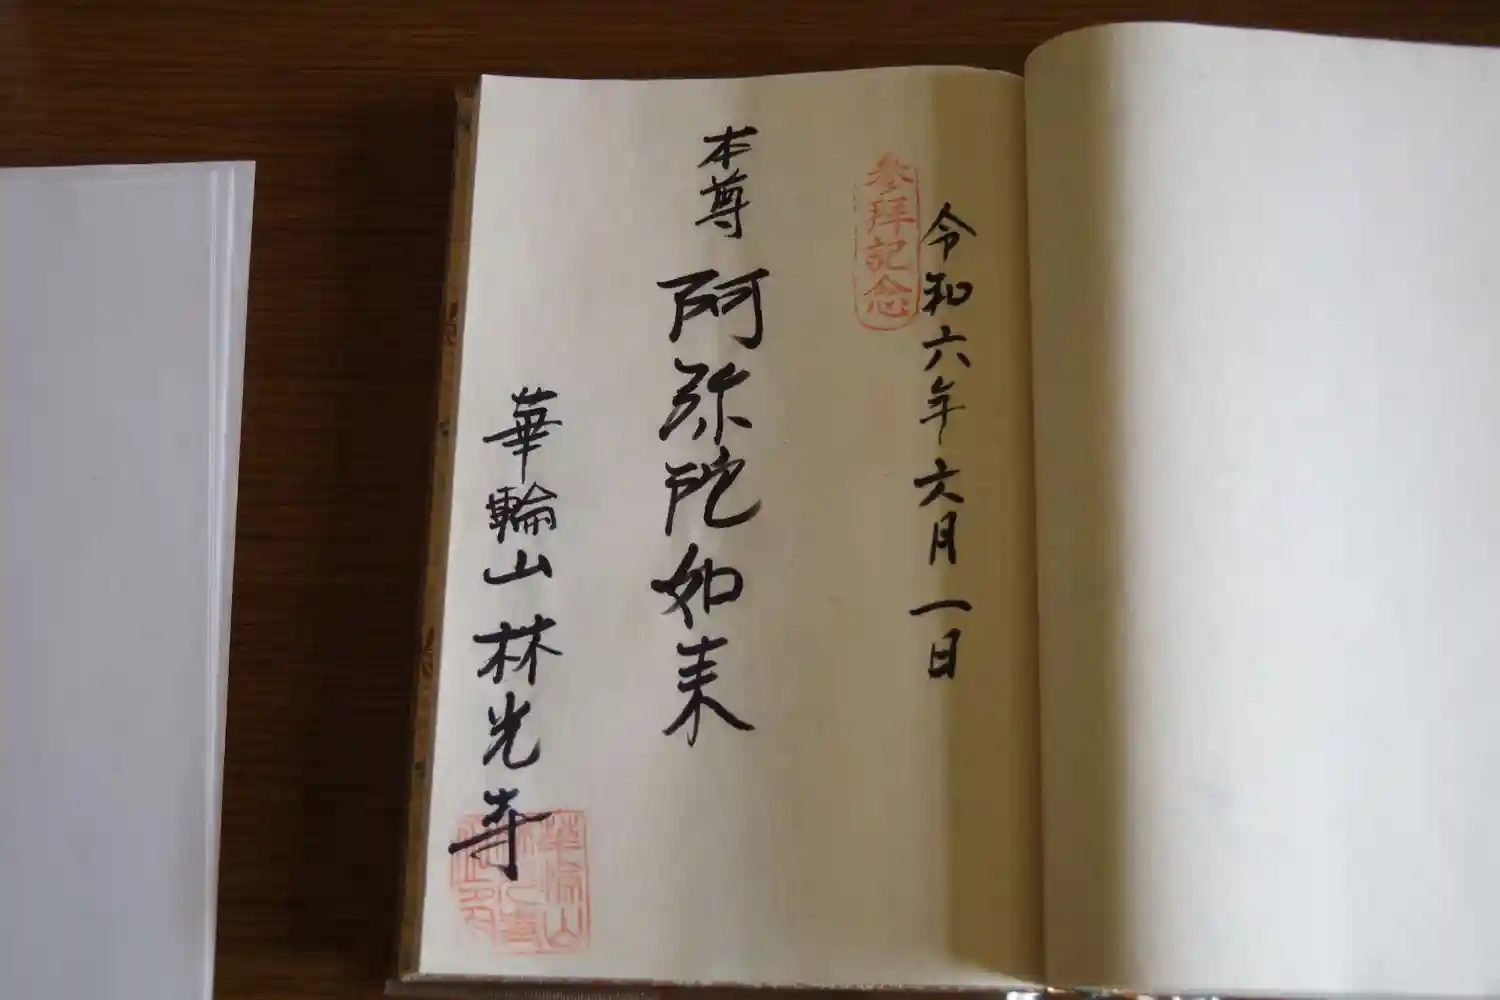 参拝記念
令和六年六月一日
本尊 阿弥陀如来
華輪山 林光寺